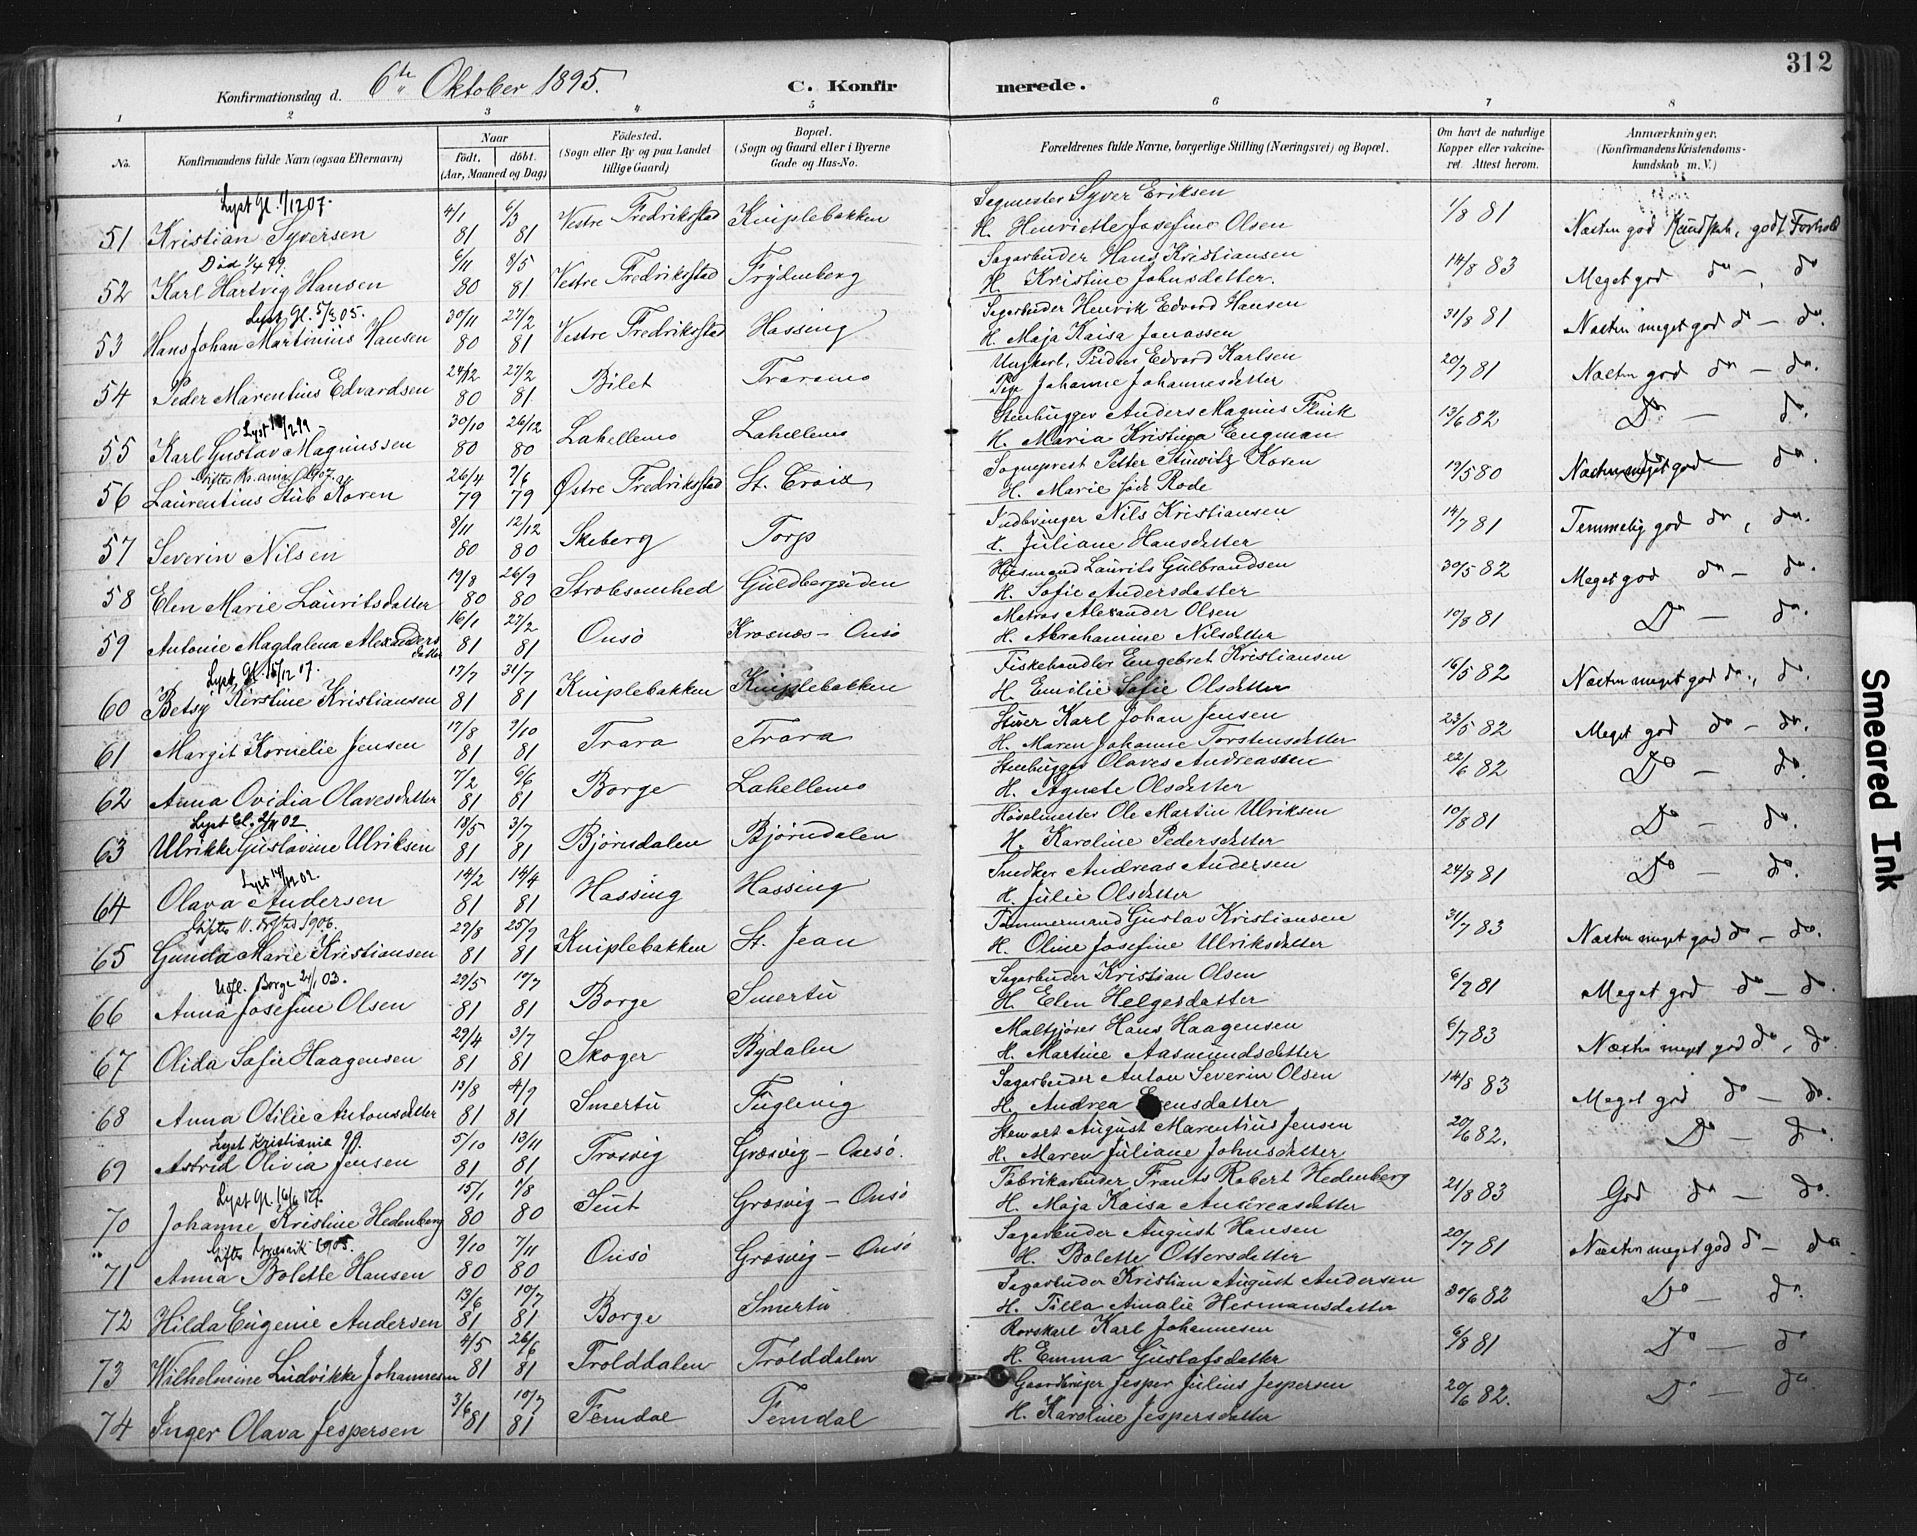 312
Konfirmationsdag d. 6te Oktober 1895.
C. Konfirmerede.
1 2 3 4 5 6 7 8
No. Konfirmandens fulde Navn (ogsaa Efternavn) Naar født. døbt. (Aar, Maaned og Dag) Fødested. (Sogn eller By og paa Landet tillige Gaard) Bopæl. (Sogn og Gaard eller i Byerne Gade og Hus-No. Forældrenes fulde Navne, borgerlige Stilling (Næringsvei) og Bopæl. Om havt de naturlige Kopper eller vakcineret. Attest herom. Anmærkninger. (Konfirmandens Kristendomskundskab m. V.)
Lyst Gl. 1/12 07.
51 Kristian Syversen 4/1 81 6/3 81 Vestre Fredriksstad Kniplebakken Sagmester Syver Eriksen H. Henriette Josefine Olsen 1/8 81 Næsten god Kundskab, godt Forhold
Død 1/4 99.
52 Karl Hartvig Hansen 6/11 80 8/5 81 Vestre Fredriksstad Frydenberg Sagarbeider Hans Kristiansen H. Kristine Johnsdatter. 14/8 83 Meget god do — do
Lyst Gl. 5/3 05.
53 Hans Johan Martinius Hansen 30/11 80 27/2 81 Vestre Fredriksstad Hassing Sagarbeider Henrik Edvard Hansen H. Maja Kaisa Jonassen 31/8 81 Næsten meget god do — do.
54 Peder Marentius Edvardsen 24/12 80 27/2 81 Bilet Traramo Ungkarl, Peder Edvard Karlsen Pige Johanne Johannesdatter 20/7 81 Næsten god do — do.
55 Karl Gustav Magnussen 30/10 80 26/12 80 Lahellemo Lahellemo Stenhugger Anders Magnus Flink H. Maria Kristina Engman 13/6 82 Do — do.
56 Laurentius Stub Koren 26/4 79 7/6 79 Østre Fredriksstad St. Croix Sogneprest Petter Stuwitz Koren H. Marie fød Rode 19/5 80 Næsten meget god — do.
57 Severin Nilsen 8/11 80 12/12 80 Skeberg Torp Indbringer Nils Kristiansen H. Juliane Hansdatter 14/7 81 Temmelig god do, do.
58 Elen Marie Lauritsdatter 19/8 80 26/9 80 Strobsomhed Guldbergsiden Husmand Laurits Gulbrandsen H. Sofie Andersdatter 30/5 82 Meget god do — do.
59 Antonie Magdalena Alexandersdatter 16/1 81 27/2 81 Onsø Krosnæs - Onsø Matros Alexander Olsen H. Abrahamine Nilsdatter 10/8 81 Do — do.
Lyst Gl. 15/12 07.
60 Betsy Kirstine Kristiansen 17/7 81 31/7 81 Kniplebakken Kniplebakken Fiskehandler Engebret Kristiansen H. Emilie Sofie Olsdatter 16/5 82 Næsten meget god do., do.
61 Margit Kornelie Jensen 17/8 81 9/10 81 Trara Trara Stuer Karl Johan Jensen H. Maren Johanne Torstensdatter 23/5 82 Meget god do — do.
62 Anna Ovidia Olavesdatter 7/2 81 6/6 81 Borge Lahellemo Stenhugger Olaves Andreassen H. Agnete Olsdatter 22/6 82 Do — do.
Lyst Gl. 2/11 02
63 Ulrikke Gustavine Ulriksen 18/5 81 3/7 81 Bjørnsdalen Bjørndalen Høvelmester Ole Martin Ulriksen H. Karoline Pedersdatter 10/8 81 Do — do.
Lyst 14/12 02.
64 Olava Andersen 14/2 81 14/4 81 Hassing Hassing Snedker Andreas Andersen H. Julie Olsdatter 24/8 81 Do — do.
65 Gunda Marie Kristiansen 29/8 81 25/9 81 Kniplebakken St. Jean Tømmermand Gustav Kristiansen H. Oline Josefine Ulriksdatter 31/7 83 Næsten meget god do — do.
Udfl. Borge 24/1 03.
66 Anna Josefine Olsen 29/5 81 10/7 81 Borge Smertu Sagarbeider Kristian Olsen H. Elen Helgesdatter 6/7 81 Meget god do — do.
67 Olida Sofie Haagensen 29/4 81 3/7 81 Skoger Bydalen Maltgjører Hans Haagensen H. Martine Aasmundsdatter 6/7 83 Næsten meget god do, do
68 Anna Otilie Antonsdatter 13/8 81 4/9 81 Smertu Fuglevig Sagarbeider Anton Severin Olsen H. Andrea Evensdatter 14/8 83 Meget god do — do.
Lyst Kristiania 99.
69 Astrid Olivia Jensen 5/10 81 13/11 81 Trosvig Græsvig - Onsø. Stewart August Marentius Jensen H. Maren Juliane Johnsdatter 20/6 82. Do — do.
70 Johanne Kristine Hedenberg 15/1 80 1/8 80 Seut Græsvig - Onsø Fabrikarbeider Frants Robert Hedenberg H. Maja Kaisa Andreasdatter 21/8 83 God do — do.
Gifte Græsvik 1905.
71 Anna Bolette Hansen 9/10 80 7/11 80 Onsø Græsvig - Onsø Sagarbeider August Hansen H. Bolette Ottersdatter 20/7 81 Næsten meget god do — do
72 Hilda Eugenie Andersen 13/6 81 10/7 81 Borge Smertu Sagarbeider Kristian August Andersen H. Tilla Amalie Hermansdatter 30/6 82 Do — do.
73 Wilhelmine Ludvikke Johannesen 4/5 81 26/6 81 Trolddalen Trolddalen Rorskarl Karl Johannesen H. Emma Gustafsdatter 6/8 81 Do — do
74 Inger Olava Jespersen 3/6 81 10/7 81 Femdal Femdal Gaardbruger Jesper Julius Jespersen H. Karoline Jespersdatter 20/6 82. Do — do
Smeared Ink